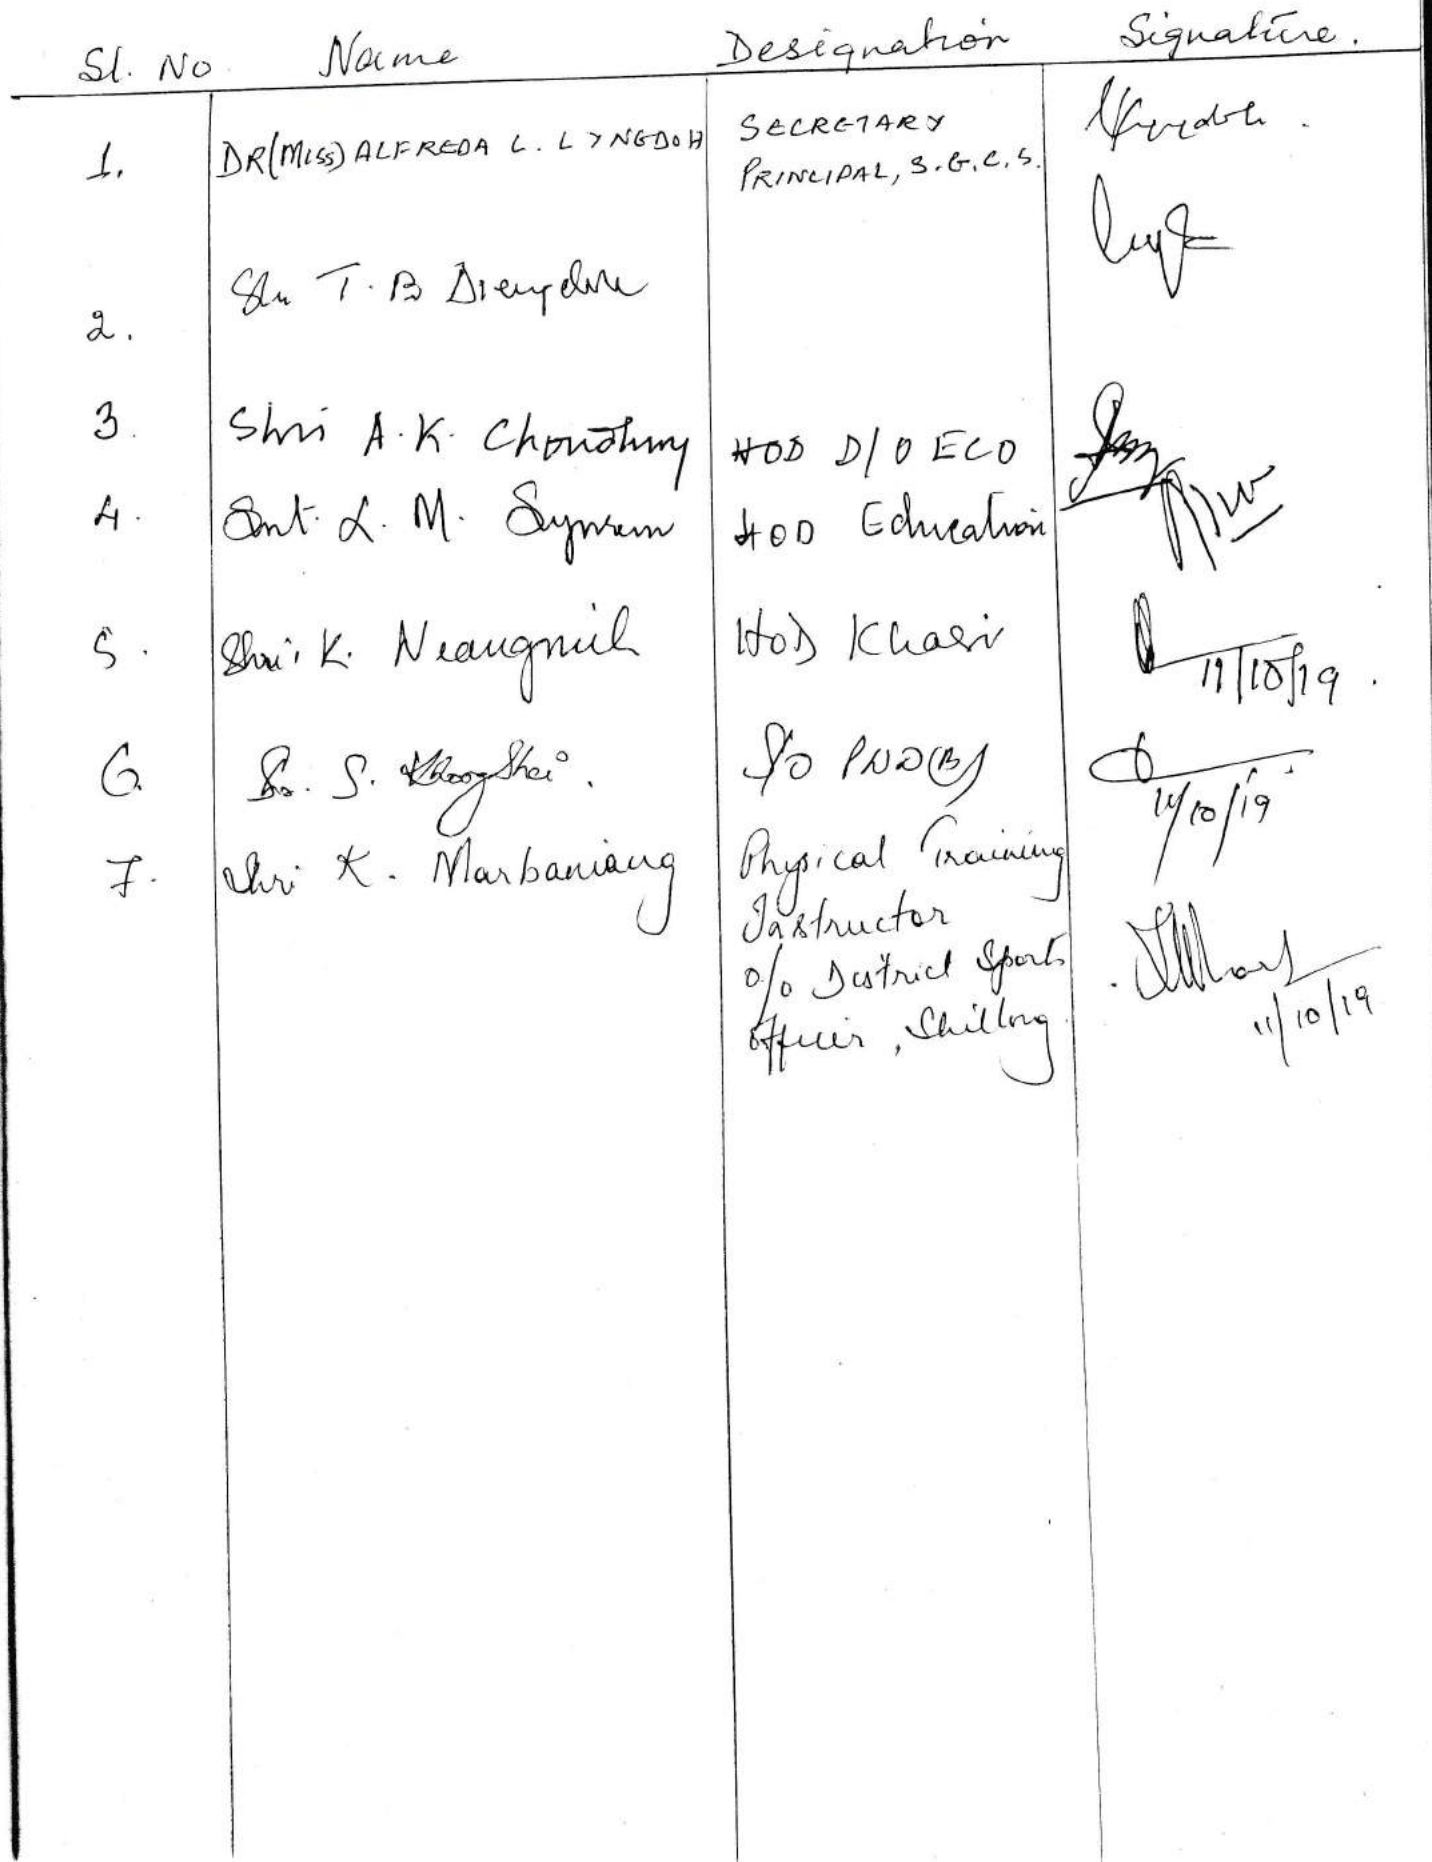 Sl. No Name Designation Signature.
1. DR(MISS) ALFREDA L. LYNGDOH SECRETARY
PRINCIPAL, S.G.C.S.
2. Shri T. B Diengdoh
3. Shri A. K. Choudhury HOD D/O ECO
4. Smt. L. M. Syiem HOD Education
5. Shri. K. HOD Khasi
11/10/19.
6. S.
11/10/19
7. Shri K. Marbaniang Physical Training
Instructor
O/o District Sports
Officer, Shillong
11/10/19